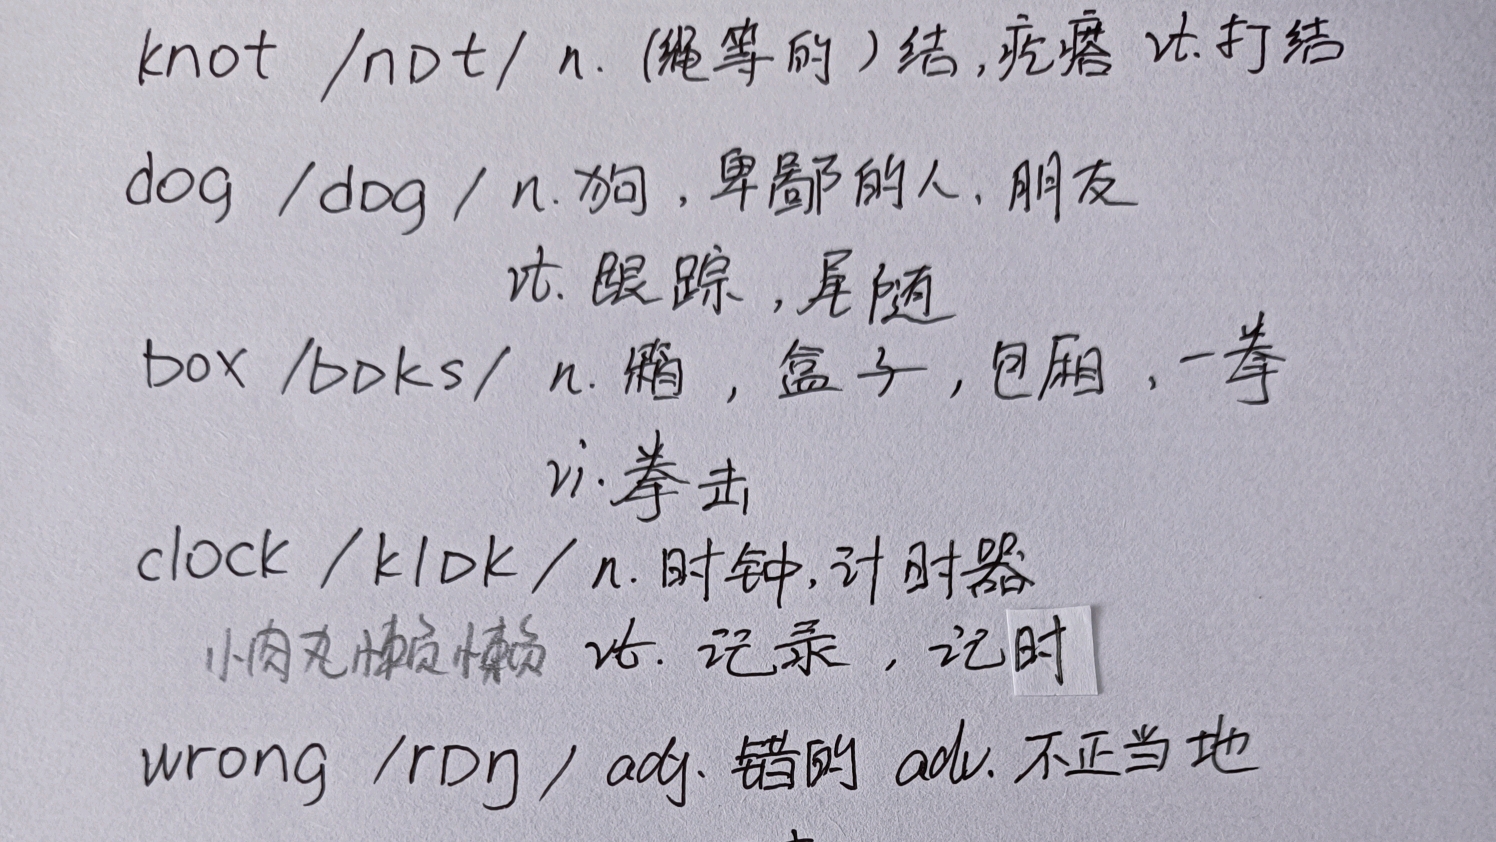 knot /nɒt/ n. (绳等的)结,疙瘩 vt. 打结
dog /dɒg/ n. 狗,卑鄙的人,朋友
vt. 跟踪,尾随
box /bɒks/ n. 箱,盒子,包厢,一拳
vi. 拳击
clock /klɒk/ n. 时钟,计时器
小肉丸懒懒 vt. 记录,记时
wrong /rɒŋ/ adj. 错的 adv. 不正当地